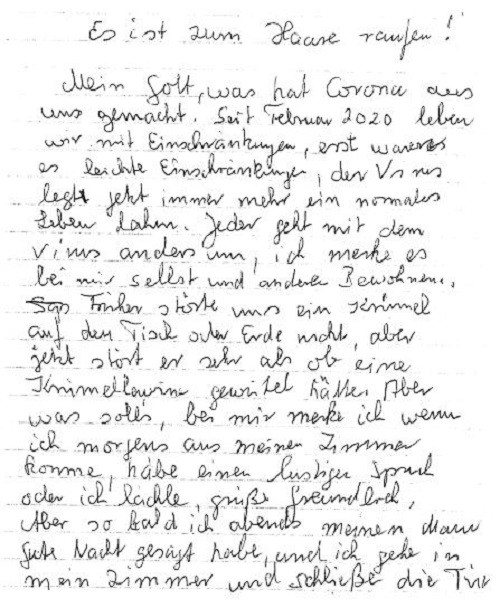 Es ist zum Haare raufen!
Mein Gott, was hat Corona aus
uns gemacht. Seit Februar 2020 leben
wir mit Einschränkungen, erst waren
es leichte Einschränkungen, der Virus
legt jetzt immer mehr ein normales
Leben lahm. Jeder geht mit dem
Virus anders um, ich merke es
bei mir selbst und anderen Bewohnern.
Früher störte uns ein Krümel
auf den Tisch oder Erde nicht, aber
jetzt stört er sehr als ob eine
Krümellawine gewütet hätte. Aber
was solls, bei mir merke ich wenn
ich morgens aus meinen Zimmer
komme, habe einen lustigen Spruch
oder ich lächle, grüße freundlich,
Aber so bald ich abends meinen Mann
Gute Nacht gesagt habe, und ich gehe in
mein Zimmer und schließe die Tür